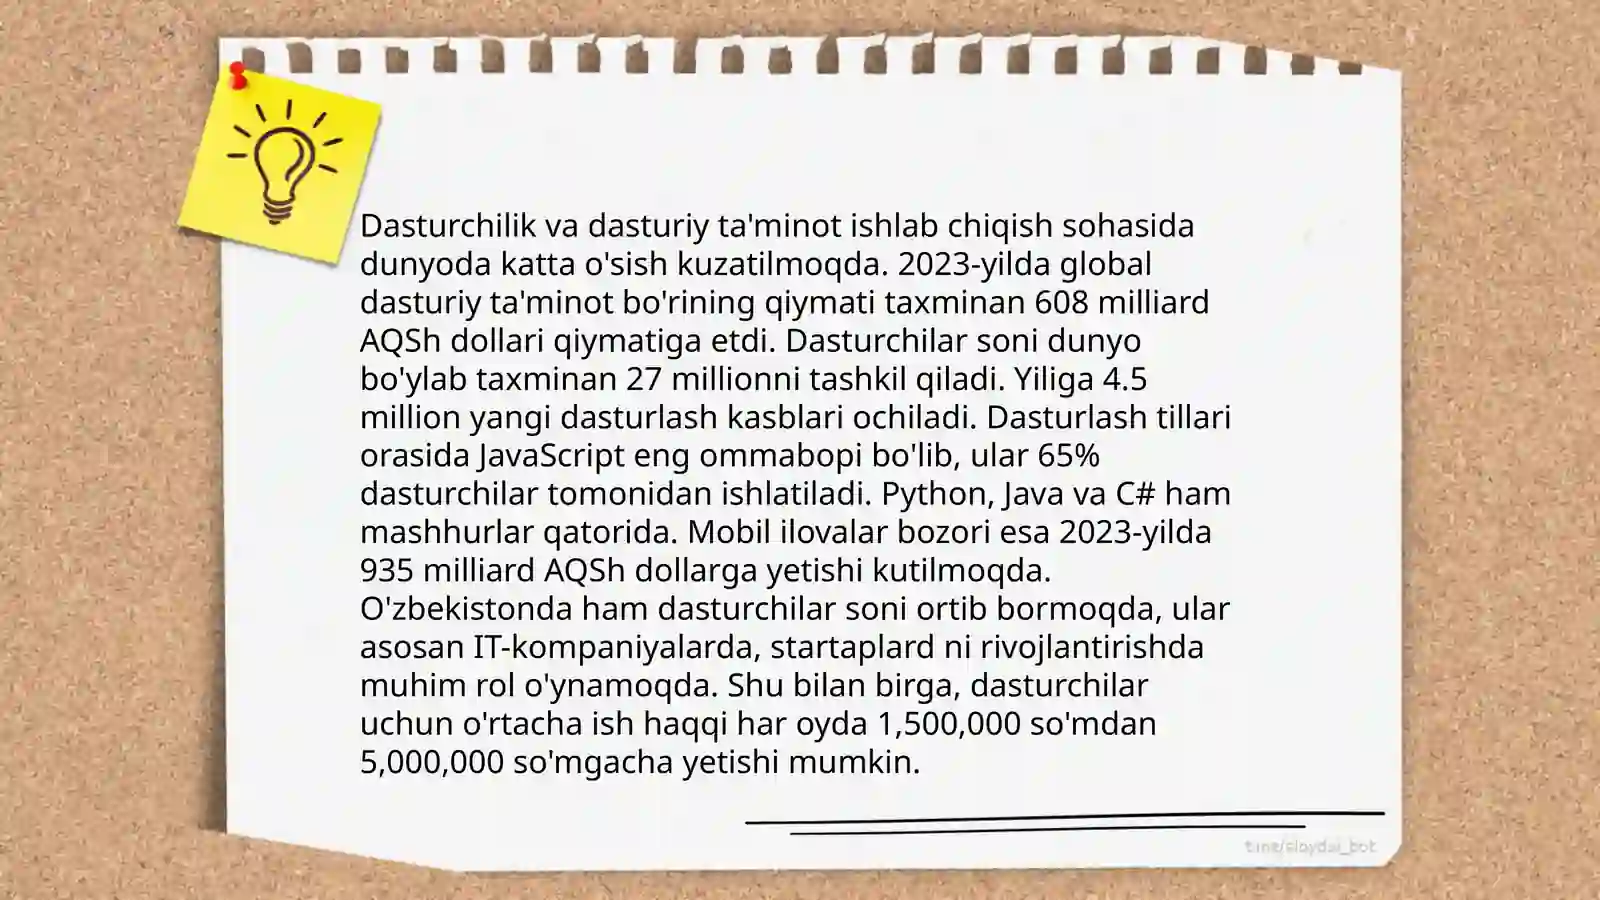 Dasturchilik va dasturiy ta'minot ishlab chiqish sohasida
dunyoda katta o'sish kuzatilmoqda. 2023-yilda global
dasturiy ta'minot bo'rining qiymati taxminan 608 milliard
AQSh dollari qiymatiga etdi. Dasturchilar soni dunyo
bo'ylab taxminan 27 millionni tashkil qiladi. Yiliga 4.5
million yangi dasturlash kasblari ochiladi. Dasturlash tillari
orasida JavaScript eng ommabopi bo'lib, ular 65%
dasturchilar tomonidan ishlatiladi. Python, Java va C# ham
mashhurlar qatorida. Mobil ilovalar bozori esa 2023-yilda
935 milliard AQSh dollarga yetishi kutilmoqda.
O'zbekistonda ham dasturchilar soni ortib bormoqda, ular
asosan IT-kompaniyalarda, startaplard ni rivojlantirishda
muhim rol o'ynamoqda. Shu bilan birga, dasturchilar
uchun o'rtacha ish haqqi har oyda 1,500,000 so'mdan
5,000,000 so'mgacha yetishi mumkin.